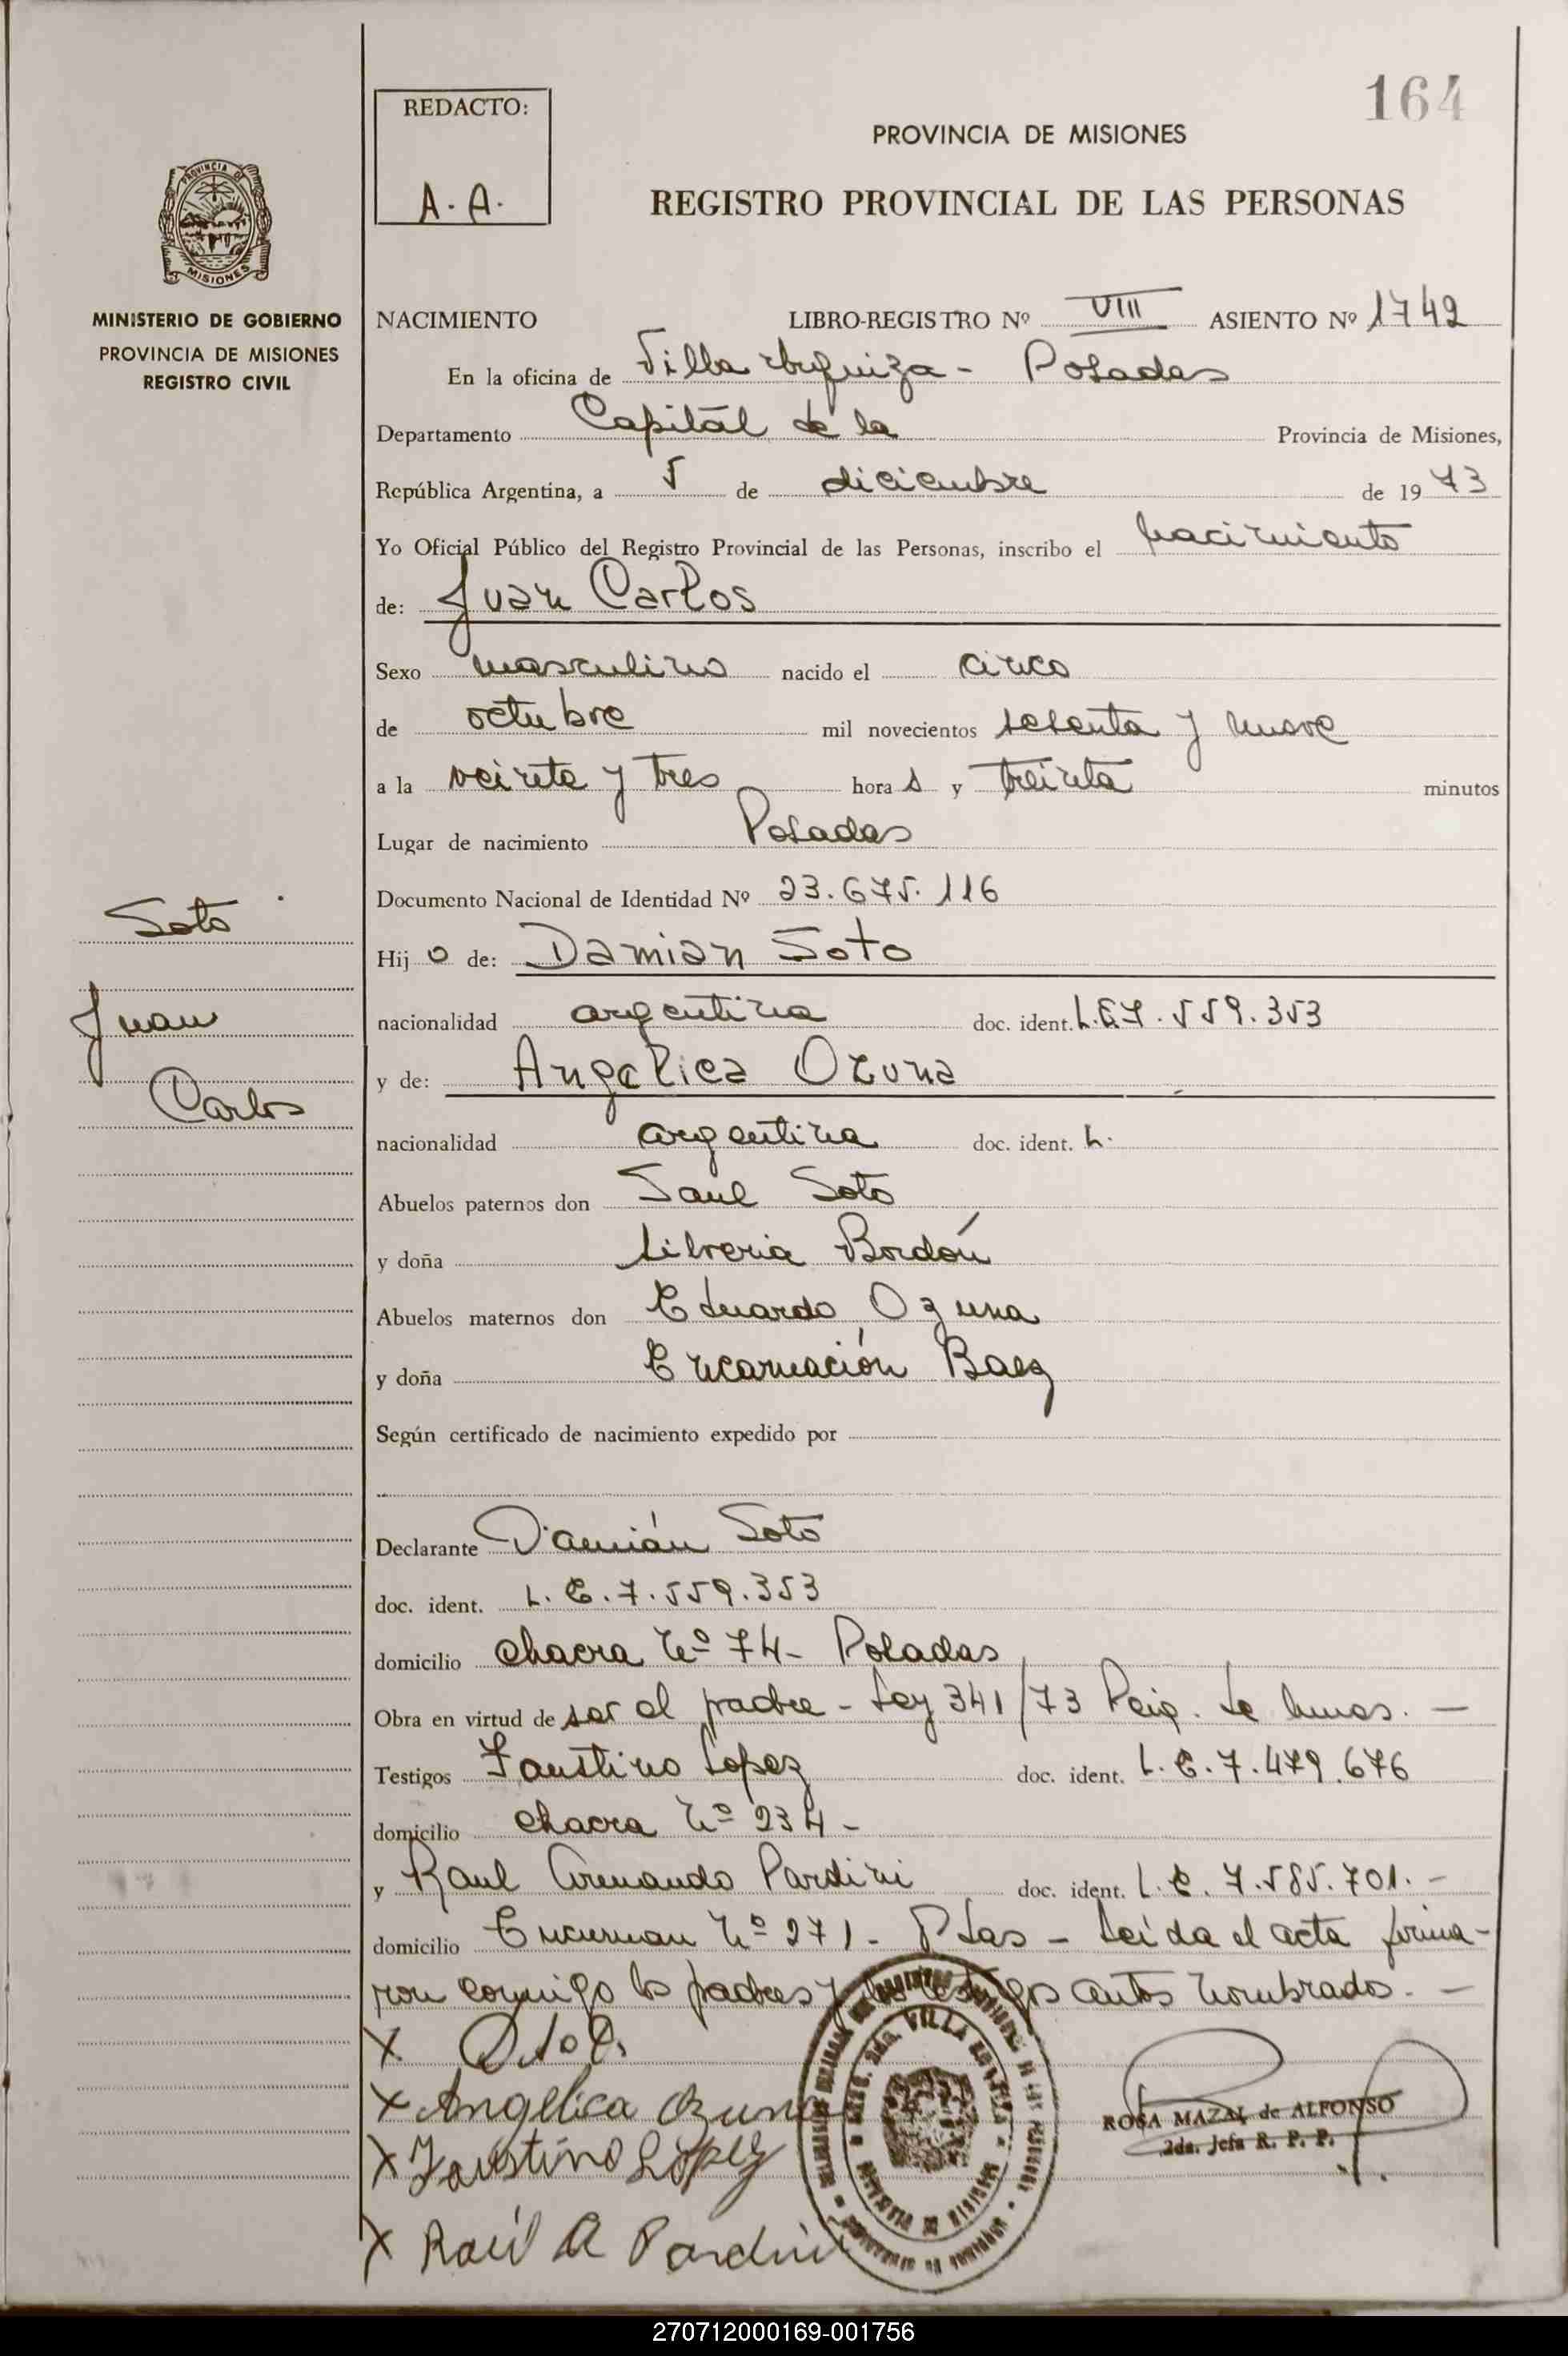 164
REDACTO:
A. A.
PROVINCIA DE MISIONES
REGISTRO PROVINCIAL DE LAS PERSONAS
PROVINCIA DE
MISIONES
MINISTERIO DE GOBIERNO
PROVINCIA DE MISIONES
REGISTRO CIVIL
NACIMIENTO LIBRO-REGISTRO Nº VIII ASIENTO Nº 1742
En la oficina de Villa Urquiza - Posadas
Departamento Capital de la Provincia de Misiones,
República Argentina, a 5 de diciembre de 1973
Yo Oficial Público del Registro Provincial de las Personas, inscribo el nacimiento
de: Juan Carlos
Sexo masculino nacido el cinco
de octubre mil novecientos sesenta y nueve
a la veinte y tres hora s y treinta minutos
Lugar de nacimiento Posadas
Documento Nacional de Identidad Nº 23.675.116
Soto
Juan
Carlos
Hijo de: Damian Soto
nacionalidad argentina doc. ident. L.E.7.559.353
y de: Angelica Ozuna
nacionalidad argentina doc. ident. L.
Abuelos paternos don Saul Soto
y doña Libreria Bordón
Abuelos maternos don Eduardo Ozuna
y doña Encarnación Baez
Según certificado de nacimiento expedido por
Declarante Damián Soto
doc. ident. L. E. 7.559.353
domicilio chacra Nº 74- Posadas
Obra en virtud de ser el padre - Ley 341/73 Reig.
Testigos Faustino Lopez doc. ident. L. E. 7.479.676
domicilio chacra Nº 234-
y Raul Armando Pardini doc. ident. L. E. 7.585.701.-
domicilio Nº 271- Pdas - Leída el acta firma-
ron conmigo los padres y los testigos antes nombrados. -
X
X Angelica Ozuna
X Faustino López
X Raúl A Pardini
ROSA MAZAL de ALFONSO
2da. Jefa R. P. P.
270712000169-001756